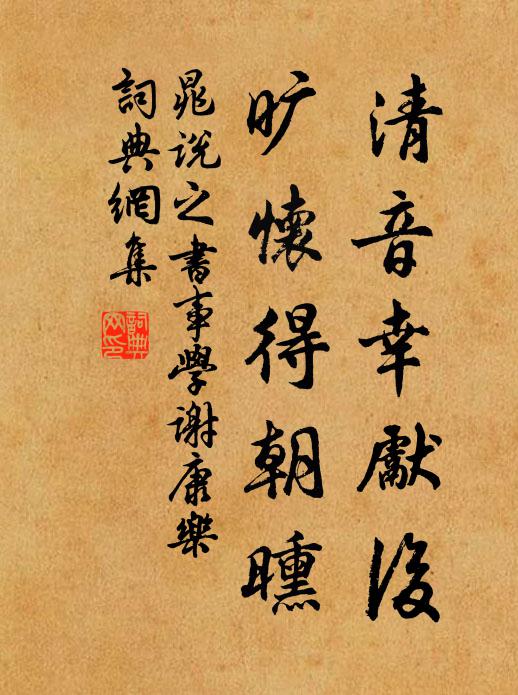 清音幸獻後
旷懷得朝曛
晁説之書事學謝康樂
詞典網集
詞典
网印